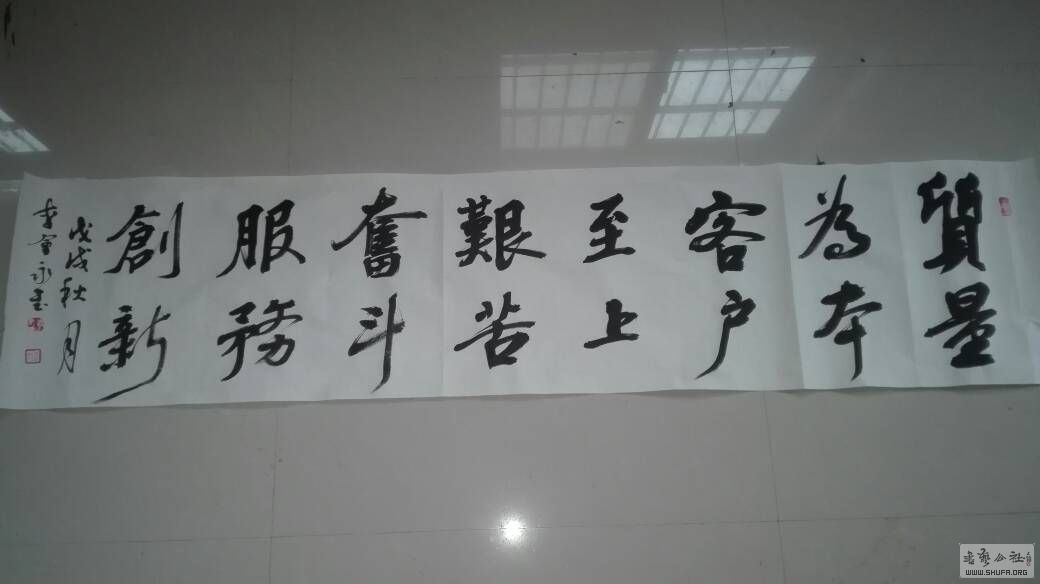 質量
為本
客户
至上
艱苦
奮斗
服務
創新
戊戌秋月
书艺公社
WWW.SHUFA.ORG